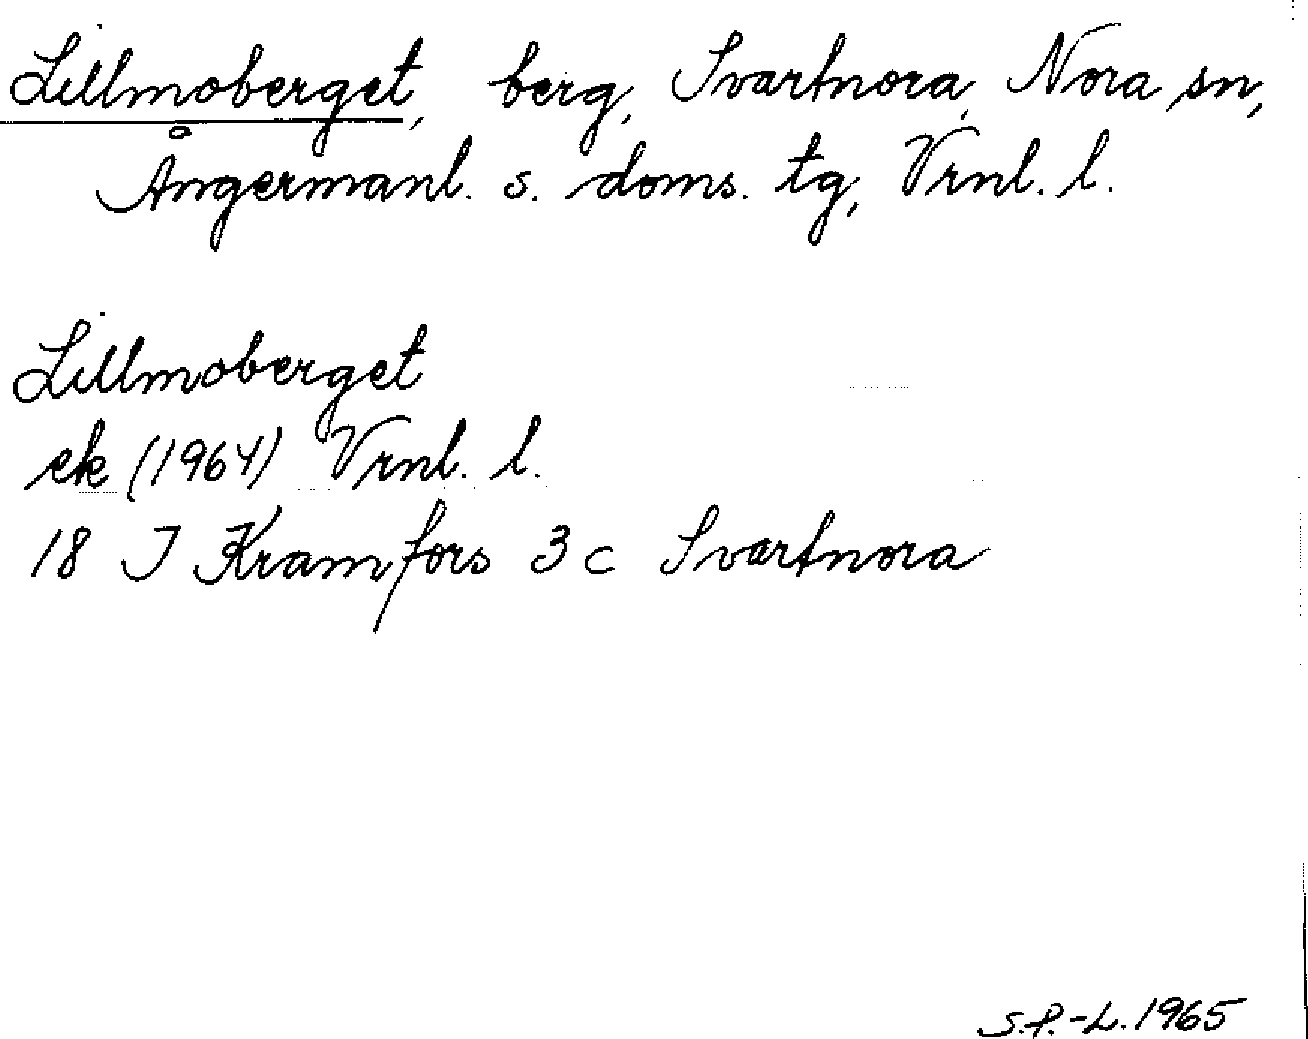 Lillmoberget, berg, Svartnora, Nora sn,
Ångermanl. s. doms. tg, Vrnl. l.
Lillmoberget
ek (1964) Vrnl. l.
18 J Kramfors 3 c Svartnora
S.P.-L. 1965